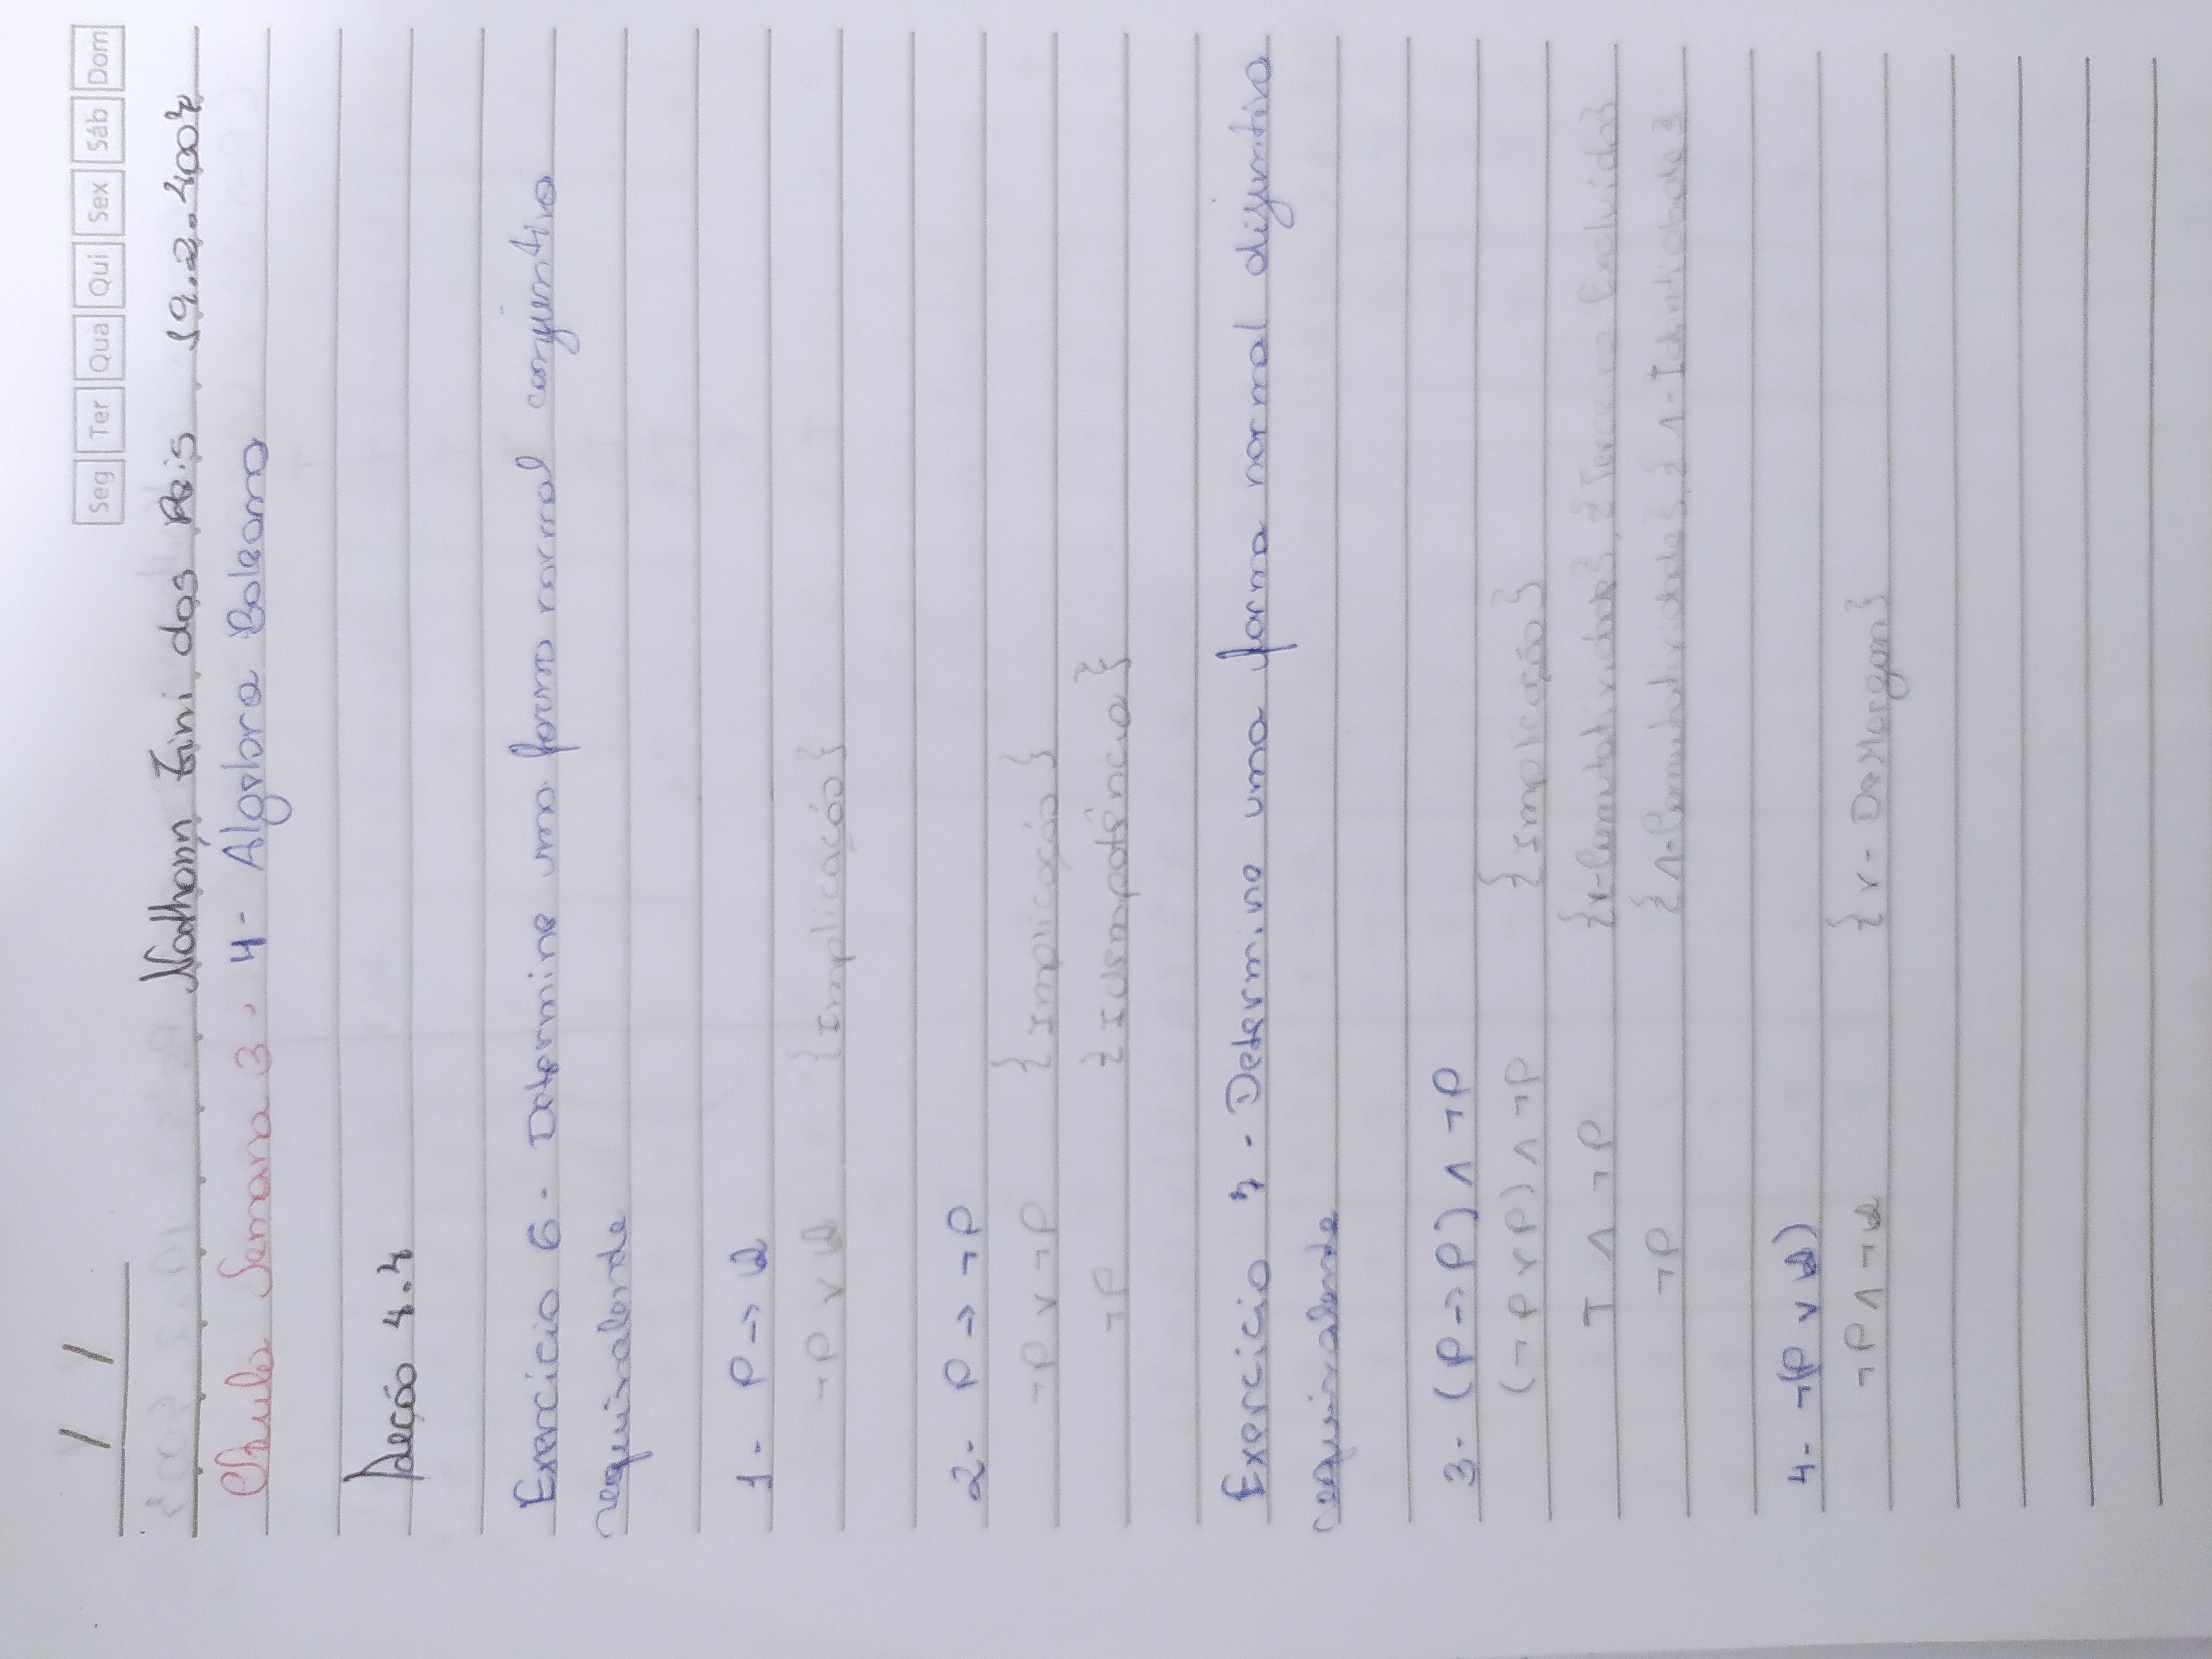 / /
Seg Ter Qua Qui Sex Sáb Dom
Nathann Zini dos Reis 19.2.4007
Aula Semana 3. 4- Álgebra Boleana
Seção 4.4
Exercício 6 - Determine uma forma normal conjuntiva
equivalende
1- P → Q
¬P ∨ Q {Implicação}
2- P → ¬P
¬P ∨ ¬P {Implicação}
¬P {Idempotência}
Exercício 7 - Determine uma forma normal disjuntiva
equivalende
3- (P → P) ∧ ¬P
(¬P ∨ P) ∧ ¬P {Implicação}
T ∧ ¬P {∨-Comutatividade}, {Terceiro Excluído}
¬P {∧-Comutatividade}, {∧-Identidade}
4- ¬(P ∨ Q)
¬P ∧ ¬Q {∨- DeMorgan}